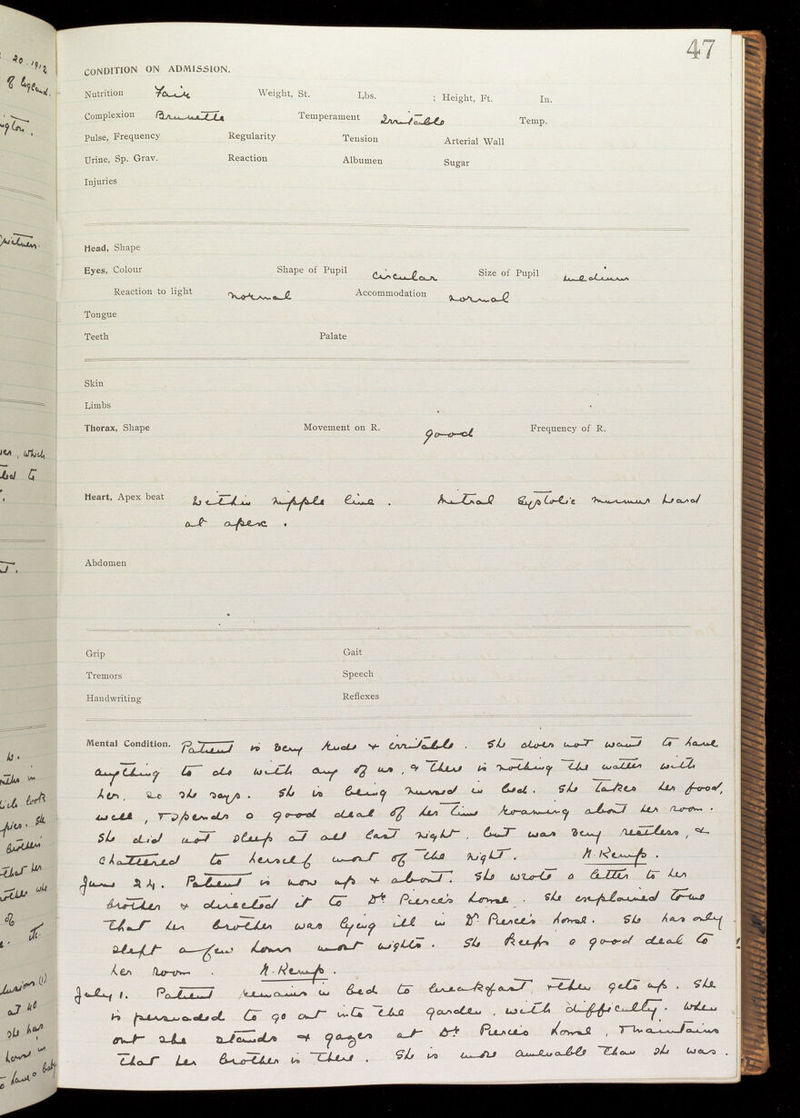 47
CONDITION ON ADMISSION.
Nutrition Fair Weight, St. Lbs. ; Height, Ft. In.
Complexion Brunette Temperament Irritable Temp.
Pulse, Frequency Regularity Tension Arterial Wall
Urine, Sp. Grav. Reaction Albumen Sugar
Injuries
Head, Shape
Eyes, Colour Shape of Pupil Circular Size of Pupil medium
Reaction to light normal Accommodation normal
Tongue
Teeth Palate
Skin
Limbs
Thorax, Shape Movement on R. good Frequency of R.
Heart, Apex beat Within nipple line . Mitral Systolic murmur heard
at apex .
Abdomen
Grip Gait
Tremors Speech
Handwriting Reflexes
Mental Condition. Patient is very rude & irritable . She does not want to have
anything to do with any of us , & there is nothing the matter with
her, so she says . She is being nursed in bed . She takes her food,
well , & spends a good deal of her time roaming about her room .
She did not sleep at all last night , but was very restless , &
chattered to herself most of the night . N. Kemp .
June 24. Patient is now up & about . She wrote a letter to her
brother & directed it to Dr Pierce's house . She explained to me
that her brother was lying ill in Dr Pierce's house . She has only
slept a few hours most nights . She keeps a good deal to
her room . N. Kemp .
July 1. Patient remains in bed to breakfast , & then gets up . She
is persuaded to go out into the garden , with difficulty . When
out she stands & gazes at Dr Pierce's house , & maintains
that her brother is there . She is more amenable than she was .
20. 1912
of England.
which
that her
she has